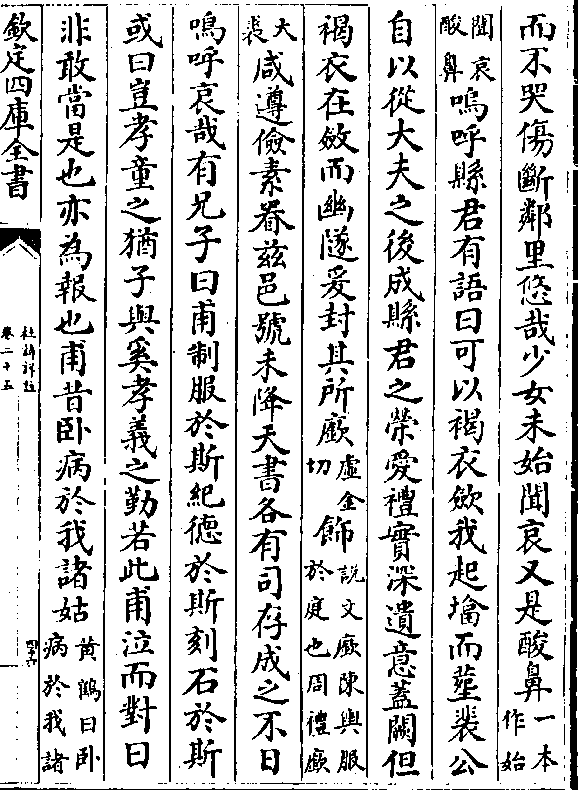 而不哭傷斷鄰里悠哉少女未始聞哀又是酸鼻一本作始
聞哀酸鼻嗚呼縣君有語曰可以褐衣斂我起墖而塟裴公
自以從大夫之後成縣君之榮愛禮實深遺意蓋闕但
褐衣在斂而幽隧爰封其所廞虛金切飾説文廞陳輿服於庭也周禮廞
大裘咸遵儉素眷兹邑號未降天書各有司存成之不日
嗚呼哀哉有兄子曰甫制服於斯紀德於斯刻石於斯
或曰豈孝童之猶子與奚孝義之勤若此甫泣而對曰
非敢當是也亦為報也甫昔卧病於我諸姑黄鶴曰卧病於我諸
欽定四庫全書
杜詩詳註
卷二十五
四十六